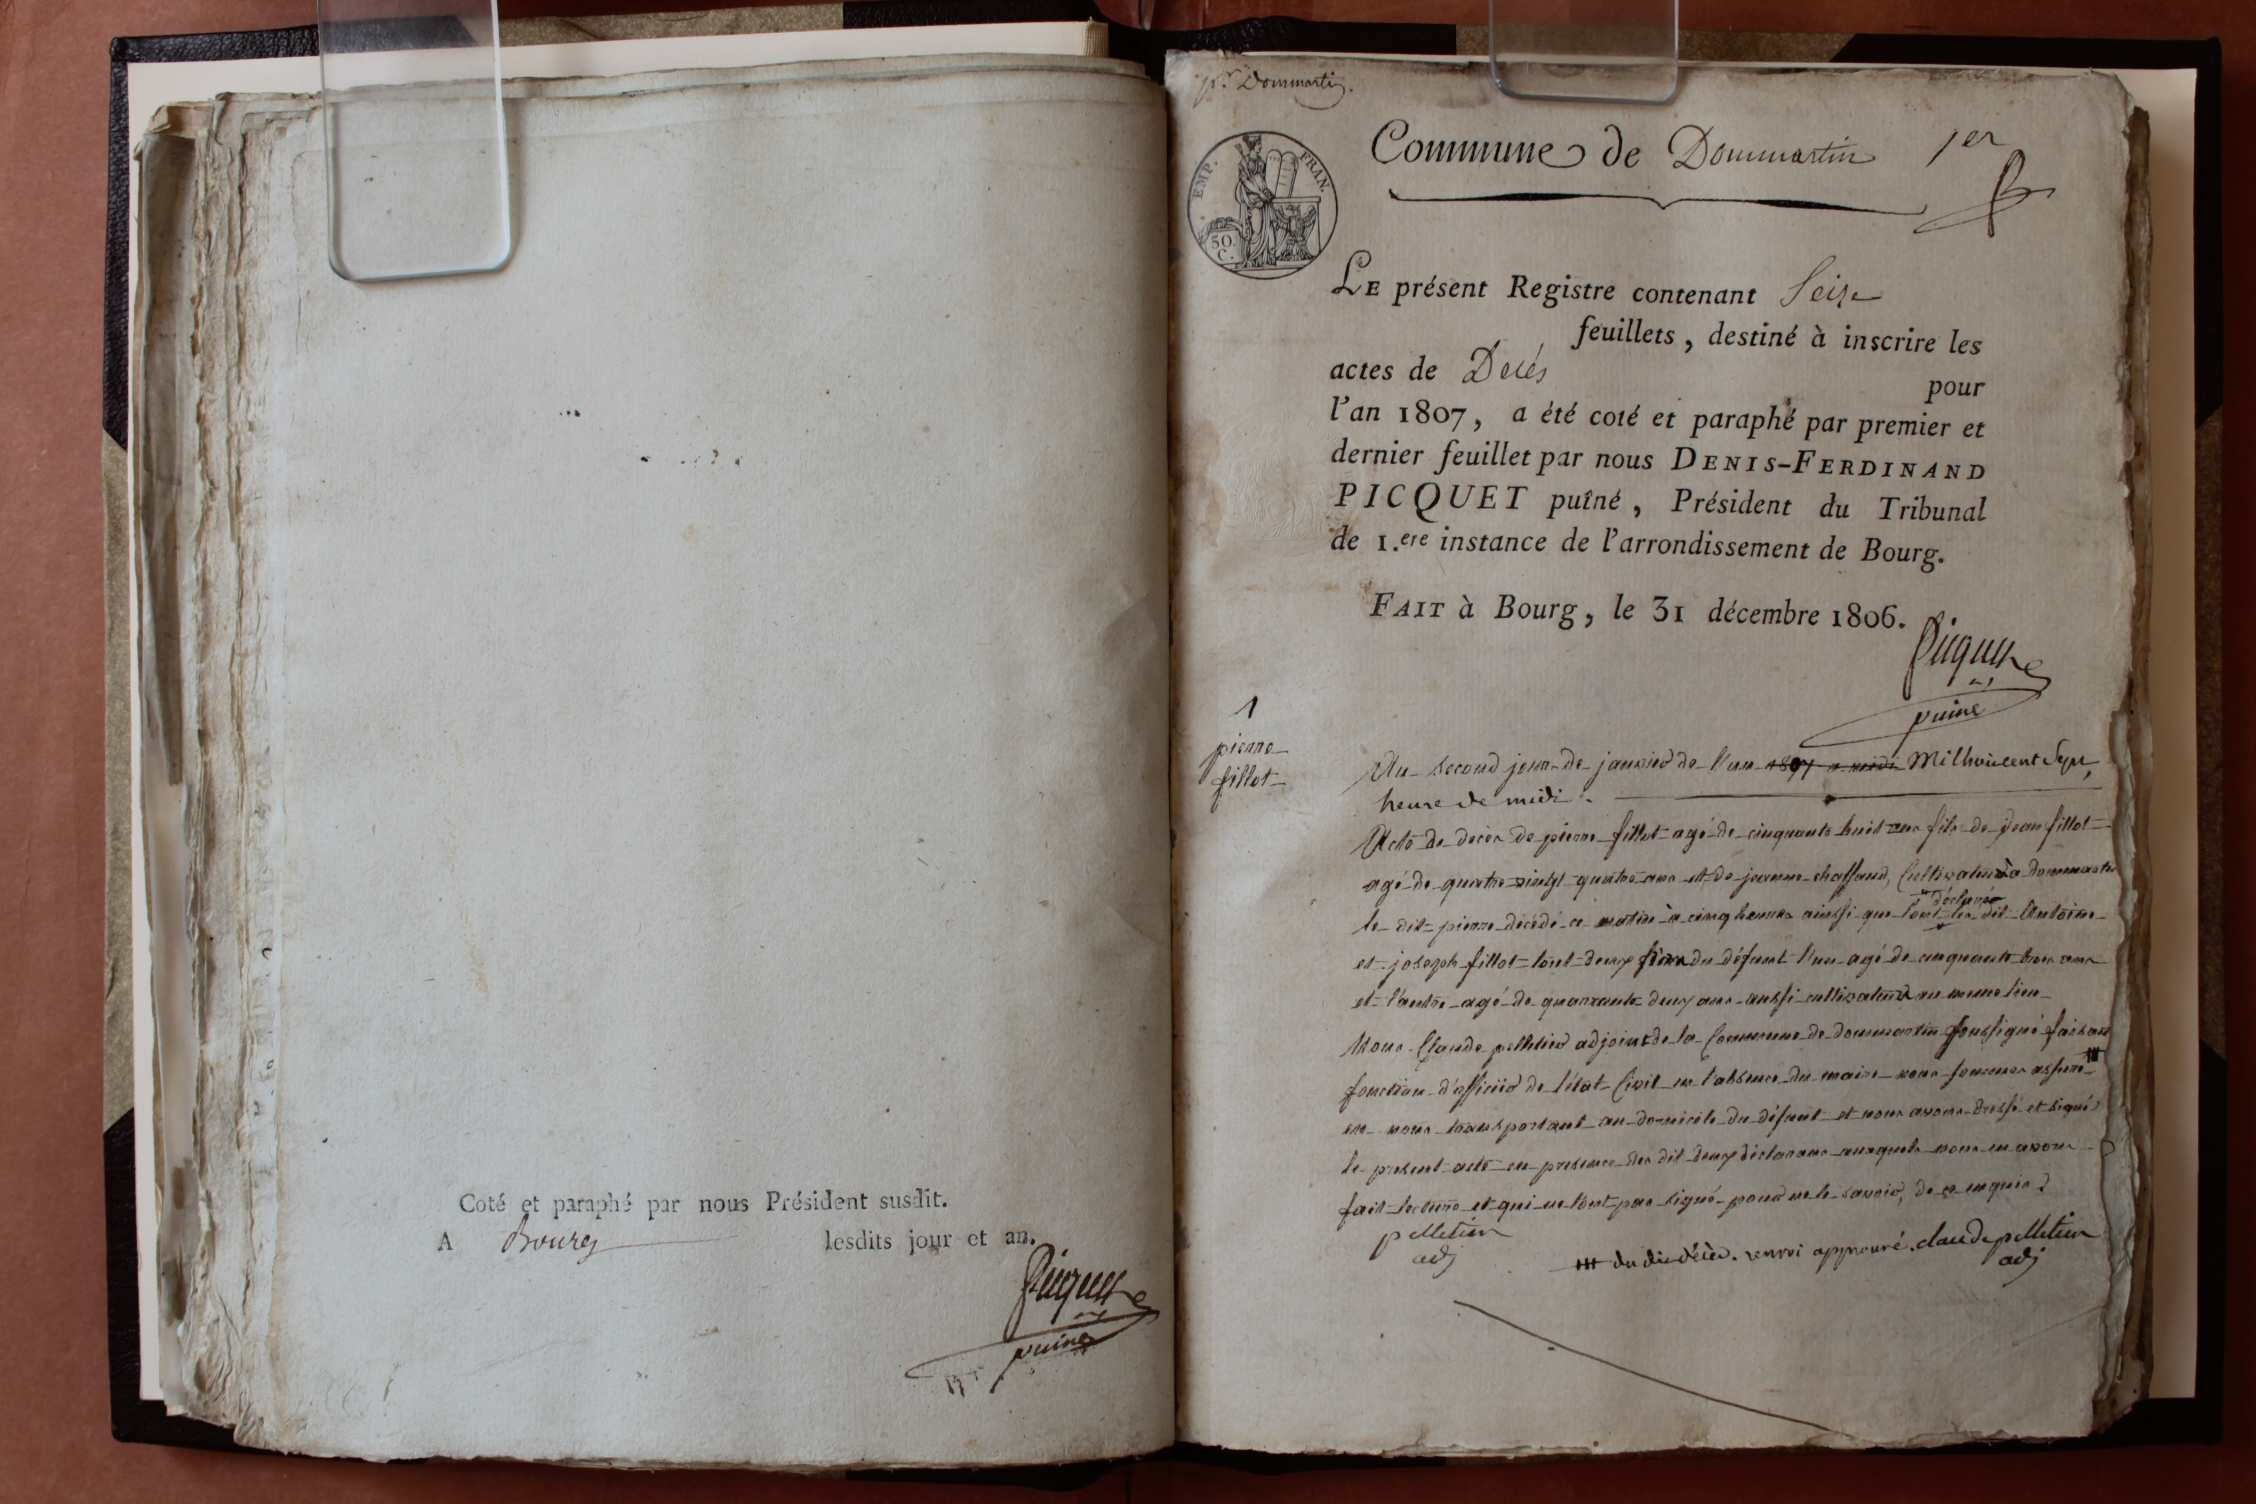 Coté et paraphé par nous Président susdit.
A Bourg lesdits jour et an.
Picquet
puiné
pr. Dommartin.
EMP. FRAN.
50.
C.
Commune de Dommartin 1er
LE présent Registre contenant Seize
feuillets, destiné à inscrire les
actes de Décés pour
l'an 1807, a été coté et paraphé par premier et
dernier feuillet par nous DENIS-FERDINAND
PICQUET puîné, Président du Tribunal
de 1.ere instance de l'arrondissement de Bourg.
FAIT à Bourg, le 31 décembre 1806.
Picquet
puiné
1
pierre
fillot
Au second jour de janvier de l'an 1807 a midi Milhuicent Sept,
heure de midi.
Acte de deces de pierre fillot agé de cinquante huit ans fils de jean fillot
agé de quatre vingt quatre ans et de jeanne chaffaud, Cultivateur à dommartin
le dit pierre décédé ce matin à cinq heures ainssi que l'ont déclaré les dit Antoine
et joseph fillot tout deux du défunt l'un agé de cinquante trois ans
et l'autre agé de quarante deux ans aussi cultivateur au meme lieu
Nous Claude pelletier adjoint de la Commune de dommartin soussigné faisant
fonction d'officier de l'état Civil en l'absence du maire nous sommes assuré
en nous transportant au domicile du défunt et nous avons dressé et signé
le présent acte en présence des dit deux déclarans auxquels nous en avons
fait lecture et qui ne l'ont pas signé pour ne le savoir, de ce enquis
pelletier
adj
du dit décès. renvoi approuvé. claude pelletier
adj